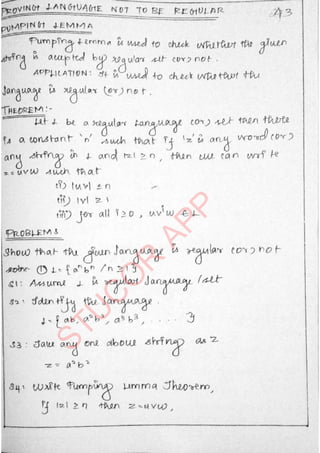 PROVING LANGUAGE NOT TO BE REGULAR 43
PUMPING LEMMA
Pumping Lemma is used to check whether the given
string is accepted by regular set (or) not.
APPLICATION: It is used to check whether the
language is regular (or) not.
THEOREM:-
Let L be a regular Language (or) set then there
is a constant 'n' such that if 'z' is any word (or)
any string in L and |z| ≥ n, then we can write
z = uvw such that
i) |uv| ≤ n
ii) |v| ≥ 1
iii) for all i ≥ 0, uvⁱw ∈ L
PROBLEMS
Show that the given language is regular (or) not
soln: ① L = { aⁿbⁿ / n ≥ 1 }
S1: Assume L is regular language /set
S2: Identify the language.
L = { ab, a²b², a³b³, ..... }
S3: Take any one above string as z
z = a²b²
S4: Write Pumping Lemma Theorem,
if |z| ≥ n then z = uvw,
STUCOR APP